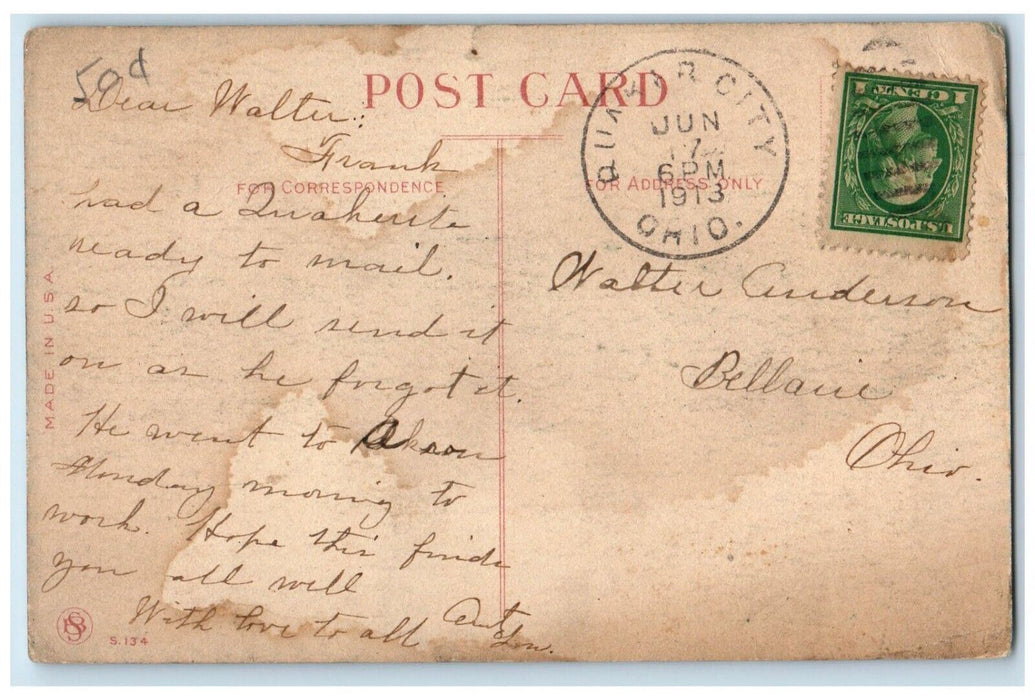 50¢
POST CARD
FOR CORRESPONDENCE
FOR ADDRESS ONLY
Dear Walter:
Frank
had a Quakerite
ready to mail.
so I will send it
on as he forgot it.
He went to Akron
Monday morning to
work. Hope this finds
you all well
With love to all Aunt
QUAKER CITY
JUN
17
6 PM
1913
OHIO.
1 CENT 1
U.S. POSTAGE
Walter Anderson
Bellaire
Ohio.
MADE IN U.S.A
SB
S.134